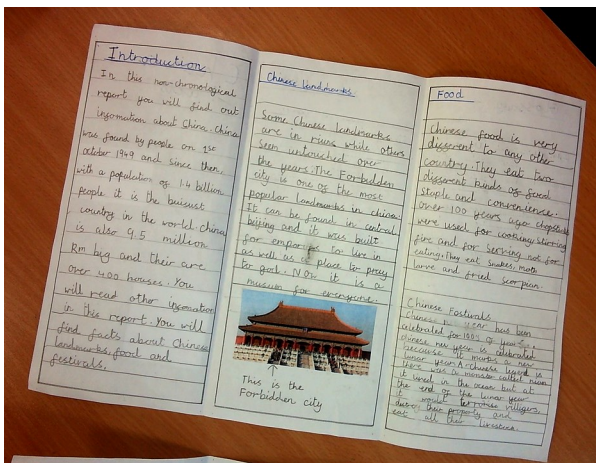 Introduction
In this non-chronological
report you will find out
information about China. China
was found by people on 1st
october 1949 and since then,
with a population of 1.4 billion
people it is the busiest
country in the world. China
is also 9.5 million
Km big and their are
over 400 houses. You
will read other information
in this report. You will
find facts about Chinese
landmarks, food and
festivals.
Chinese landmarks
Some Chinese landmarks
are in ruins while others
seem untouched over
the years. The Forbidden
city is one of the most
popular landmarks in china.
It can be found in central
beijing and it was built
for emporors to live in
as well as a place to pray
to god. Now it is a
museum for everyone.
This is the
Forbidden city
Food
Chinese food is very
different to any other
country. They eat two
different kinds of food
Staple and convenience.
Over 100 years ago chopsticks
were used for cooking, stirring
fire and for serving not for
eating. They eat snakes, moth
larve and fried scorpian.
Chinese Festivals
Chinese year has been
celebrated for 100s of years.
chinese new year is celebrated
because it marks a new
lunar year. A chinese legend is
there was a monster called nian
it lived in the ocean but at
the end of the lunar year
it would terrorise villigers,
destroy their property and
eat all their livestock.